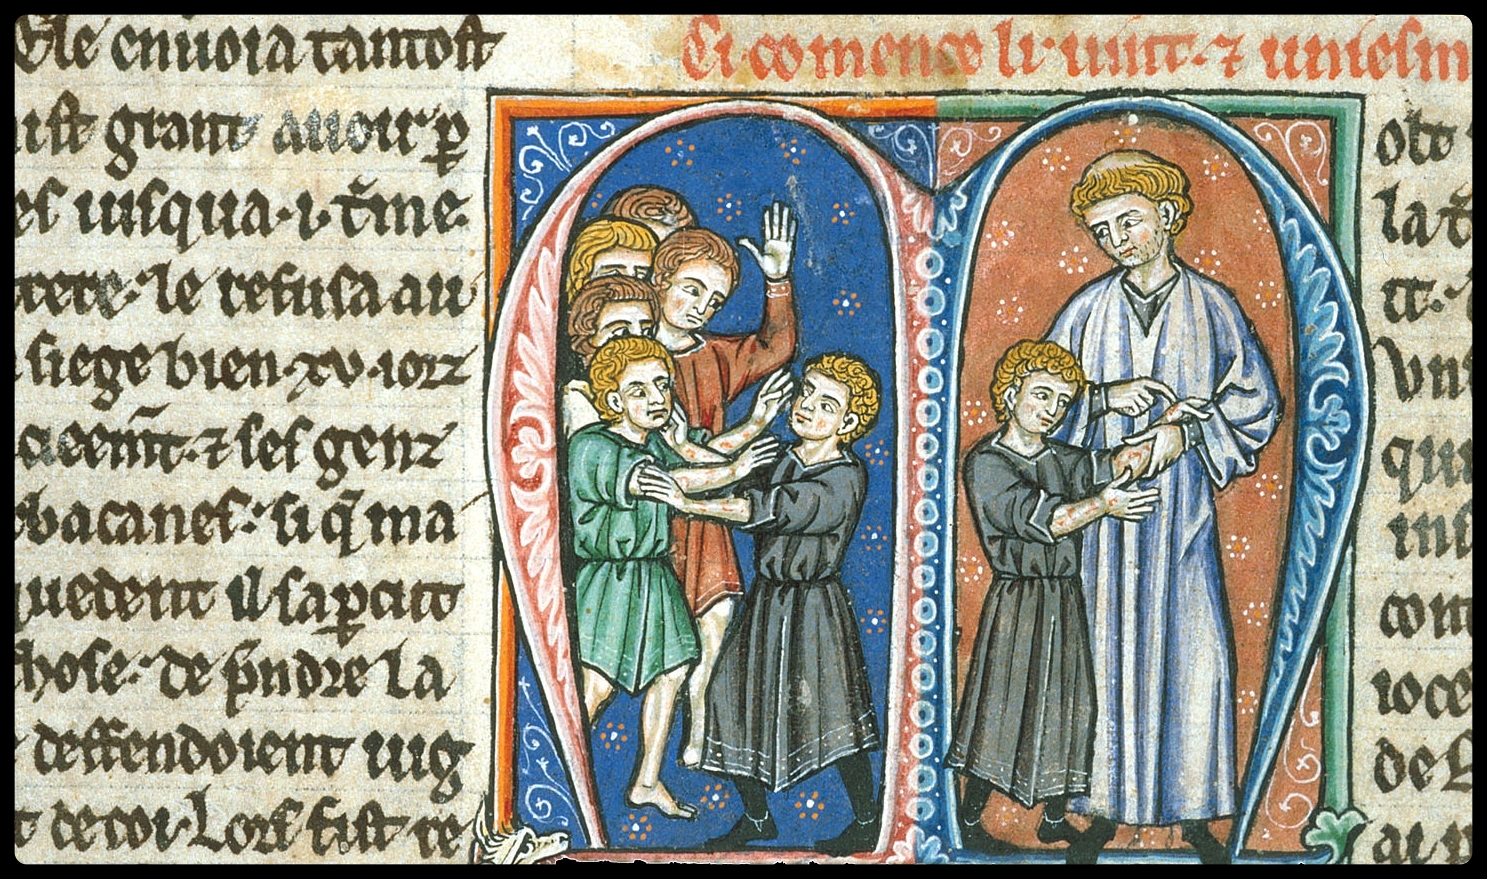 Ele enuoia tantost
ist grant auoir ꝑ
es iusqua·i·t̃me
trere· le refusa au
siege bien·xv·iorz
⁊ ses genz
bacanes· si q̃ ma
quedent il saꝑcut
chose· de p̃ndre la
deffendoient uig
t de coi· Lors fist re
Ci comence li· uint· ⁊ uniesm
la
Vn
qua
ins
com
ioce
de